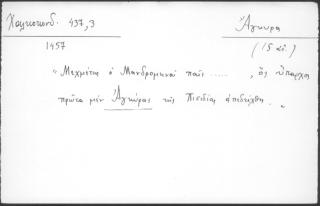 Χαλκοκονδ. 437,3
Ἄγκυρα
1457
(15 αἰ.)
"Μεχμέτης ὁ Μανδρομηνοῦ παῖς ..... , ὃς ὕπαρχος
πρῶτα μὲν Ἀγκύρας τῆς Πισιδίας ἀπεδείχθη. "